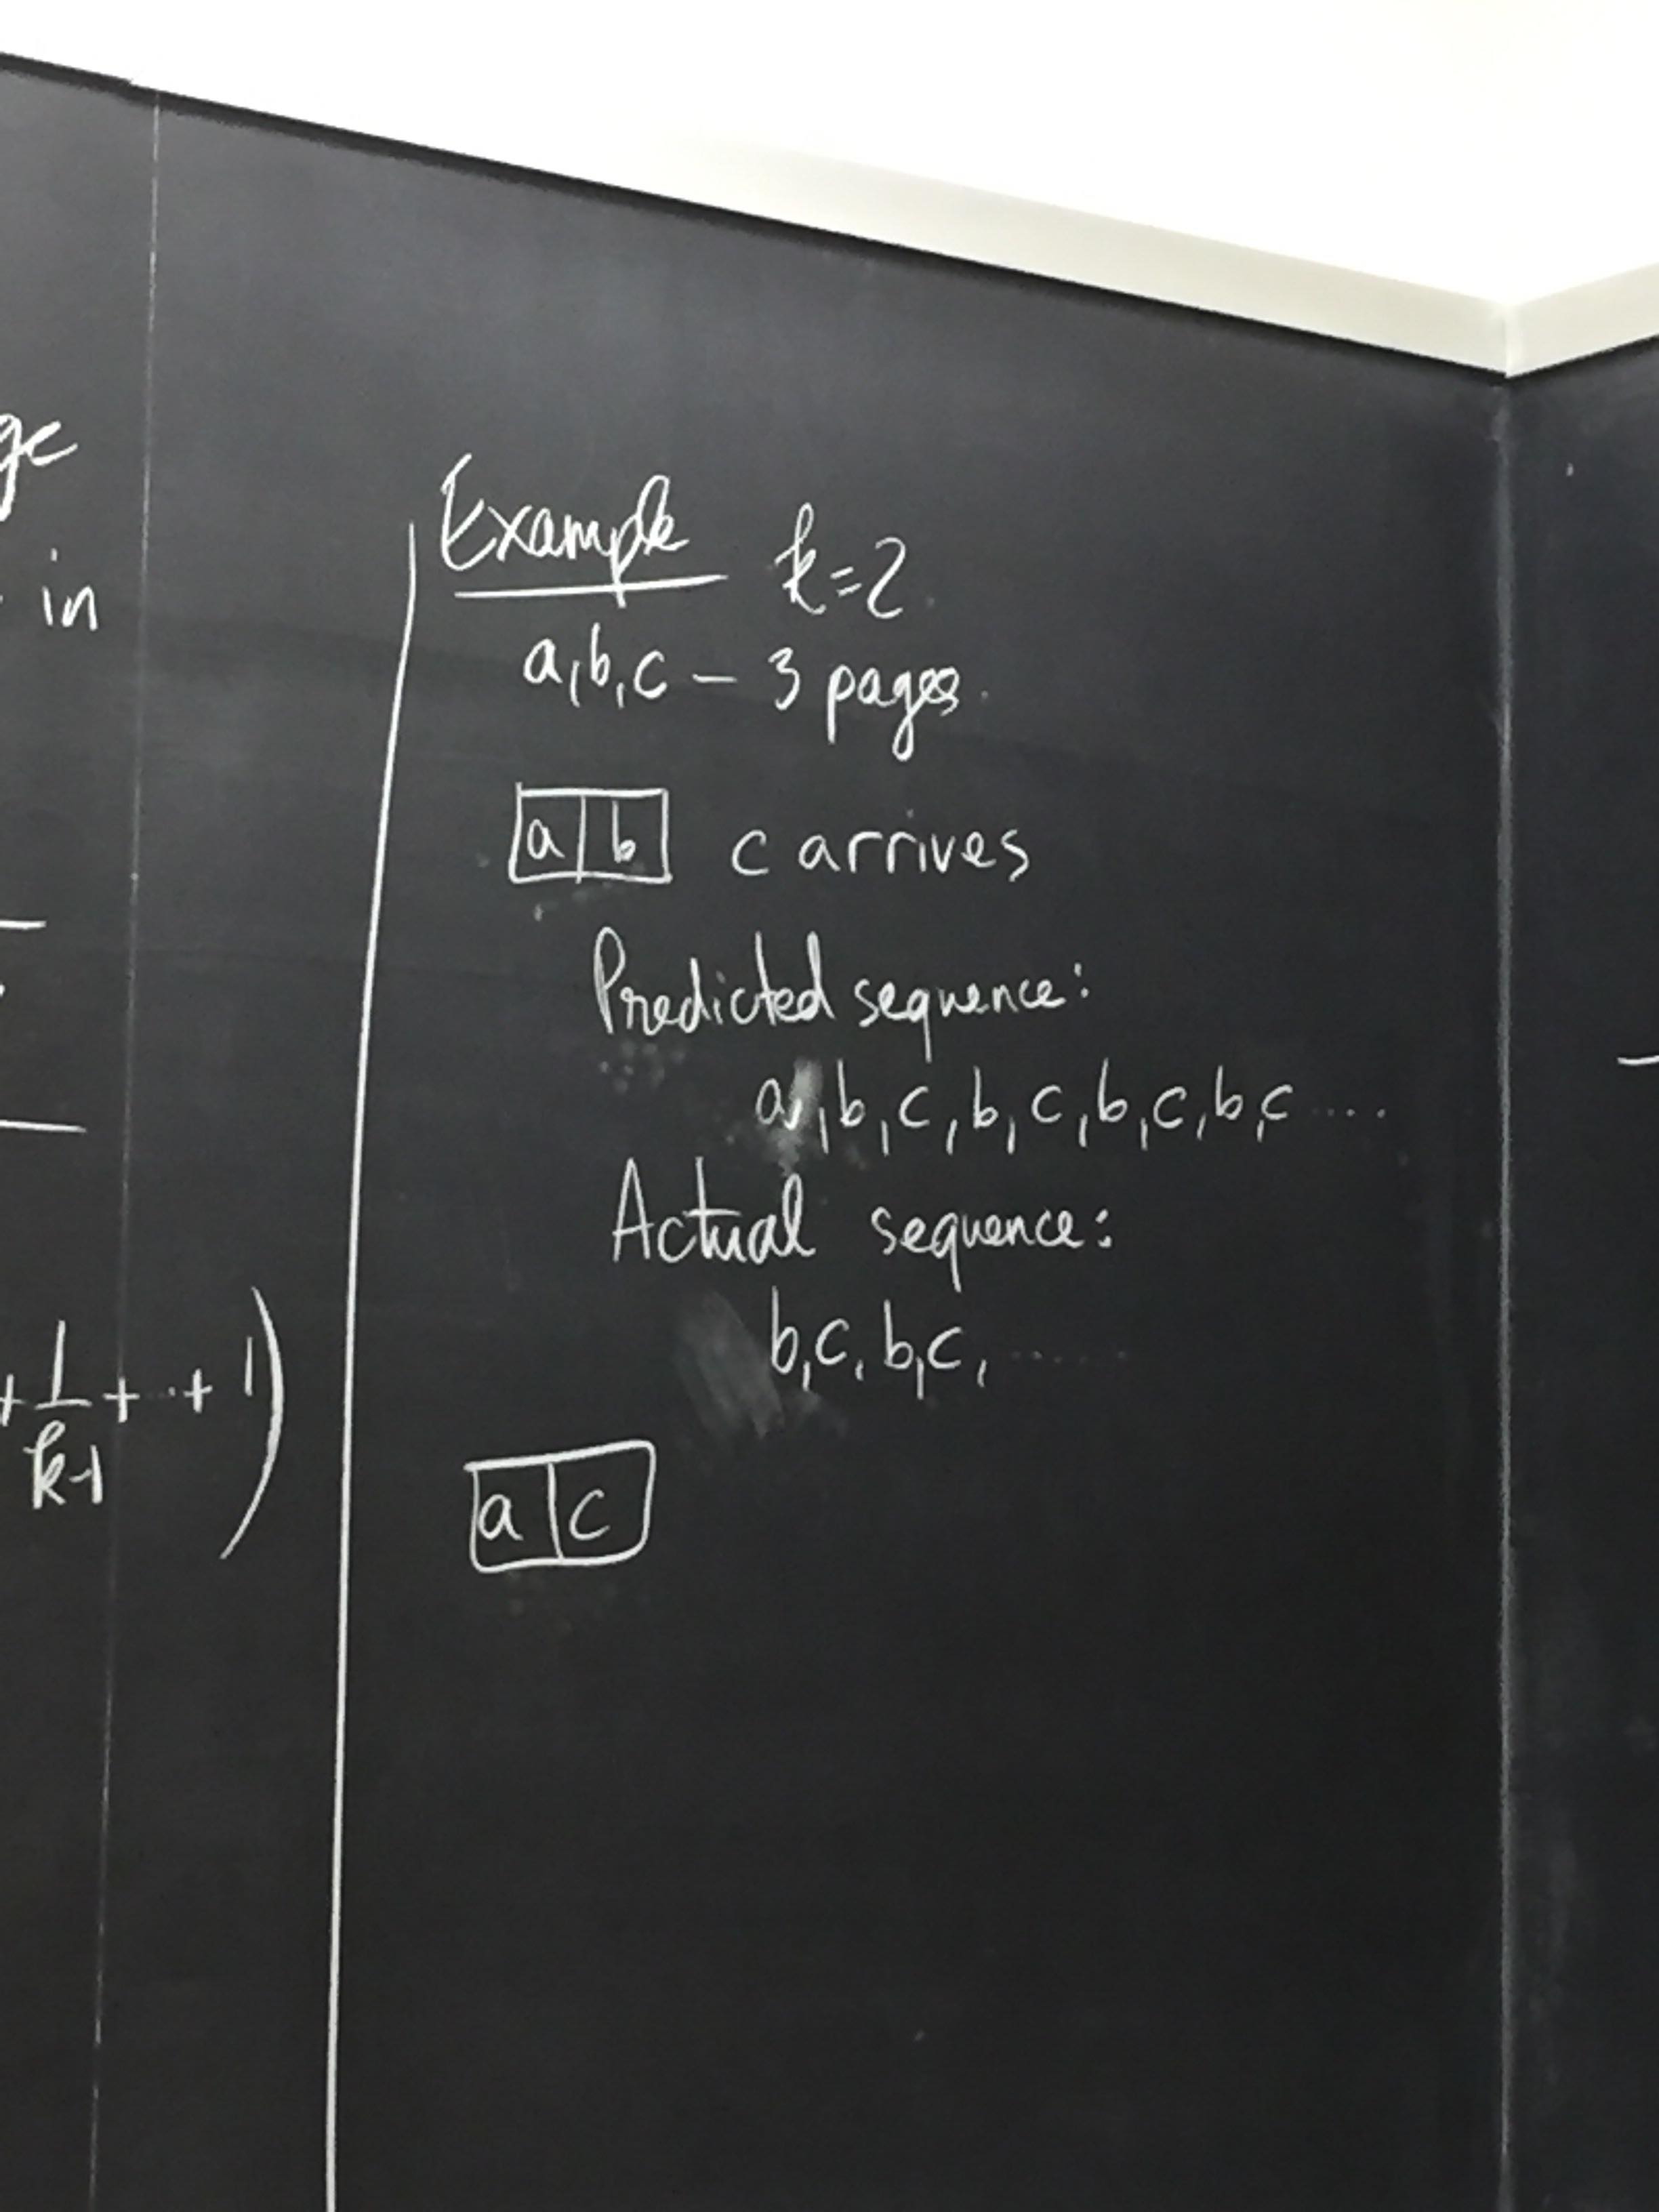 in
+ 1/k-1 + .. + 1)
Example k=2
a,b,c – 3 pages.
a | b c arrives
Predicted sequence:
a,b,c,b,c,b,c,b,c ....
Actual sequence:
b,c,b,c, ......
a | c